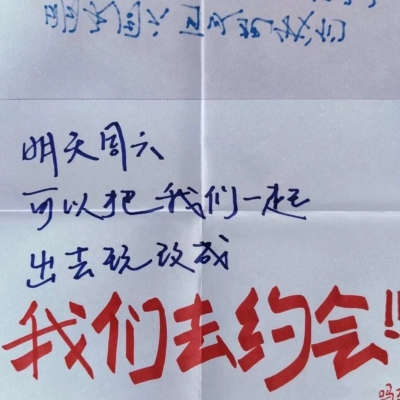 明天周六
可以把我们一起
出去玩改成
我们去约会!!
吗